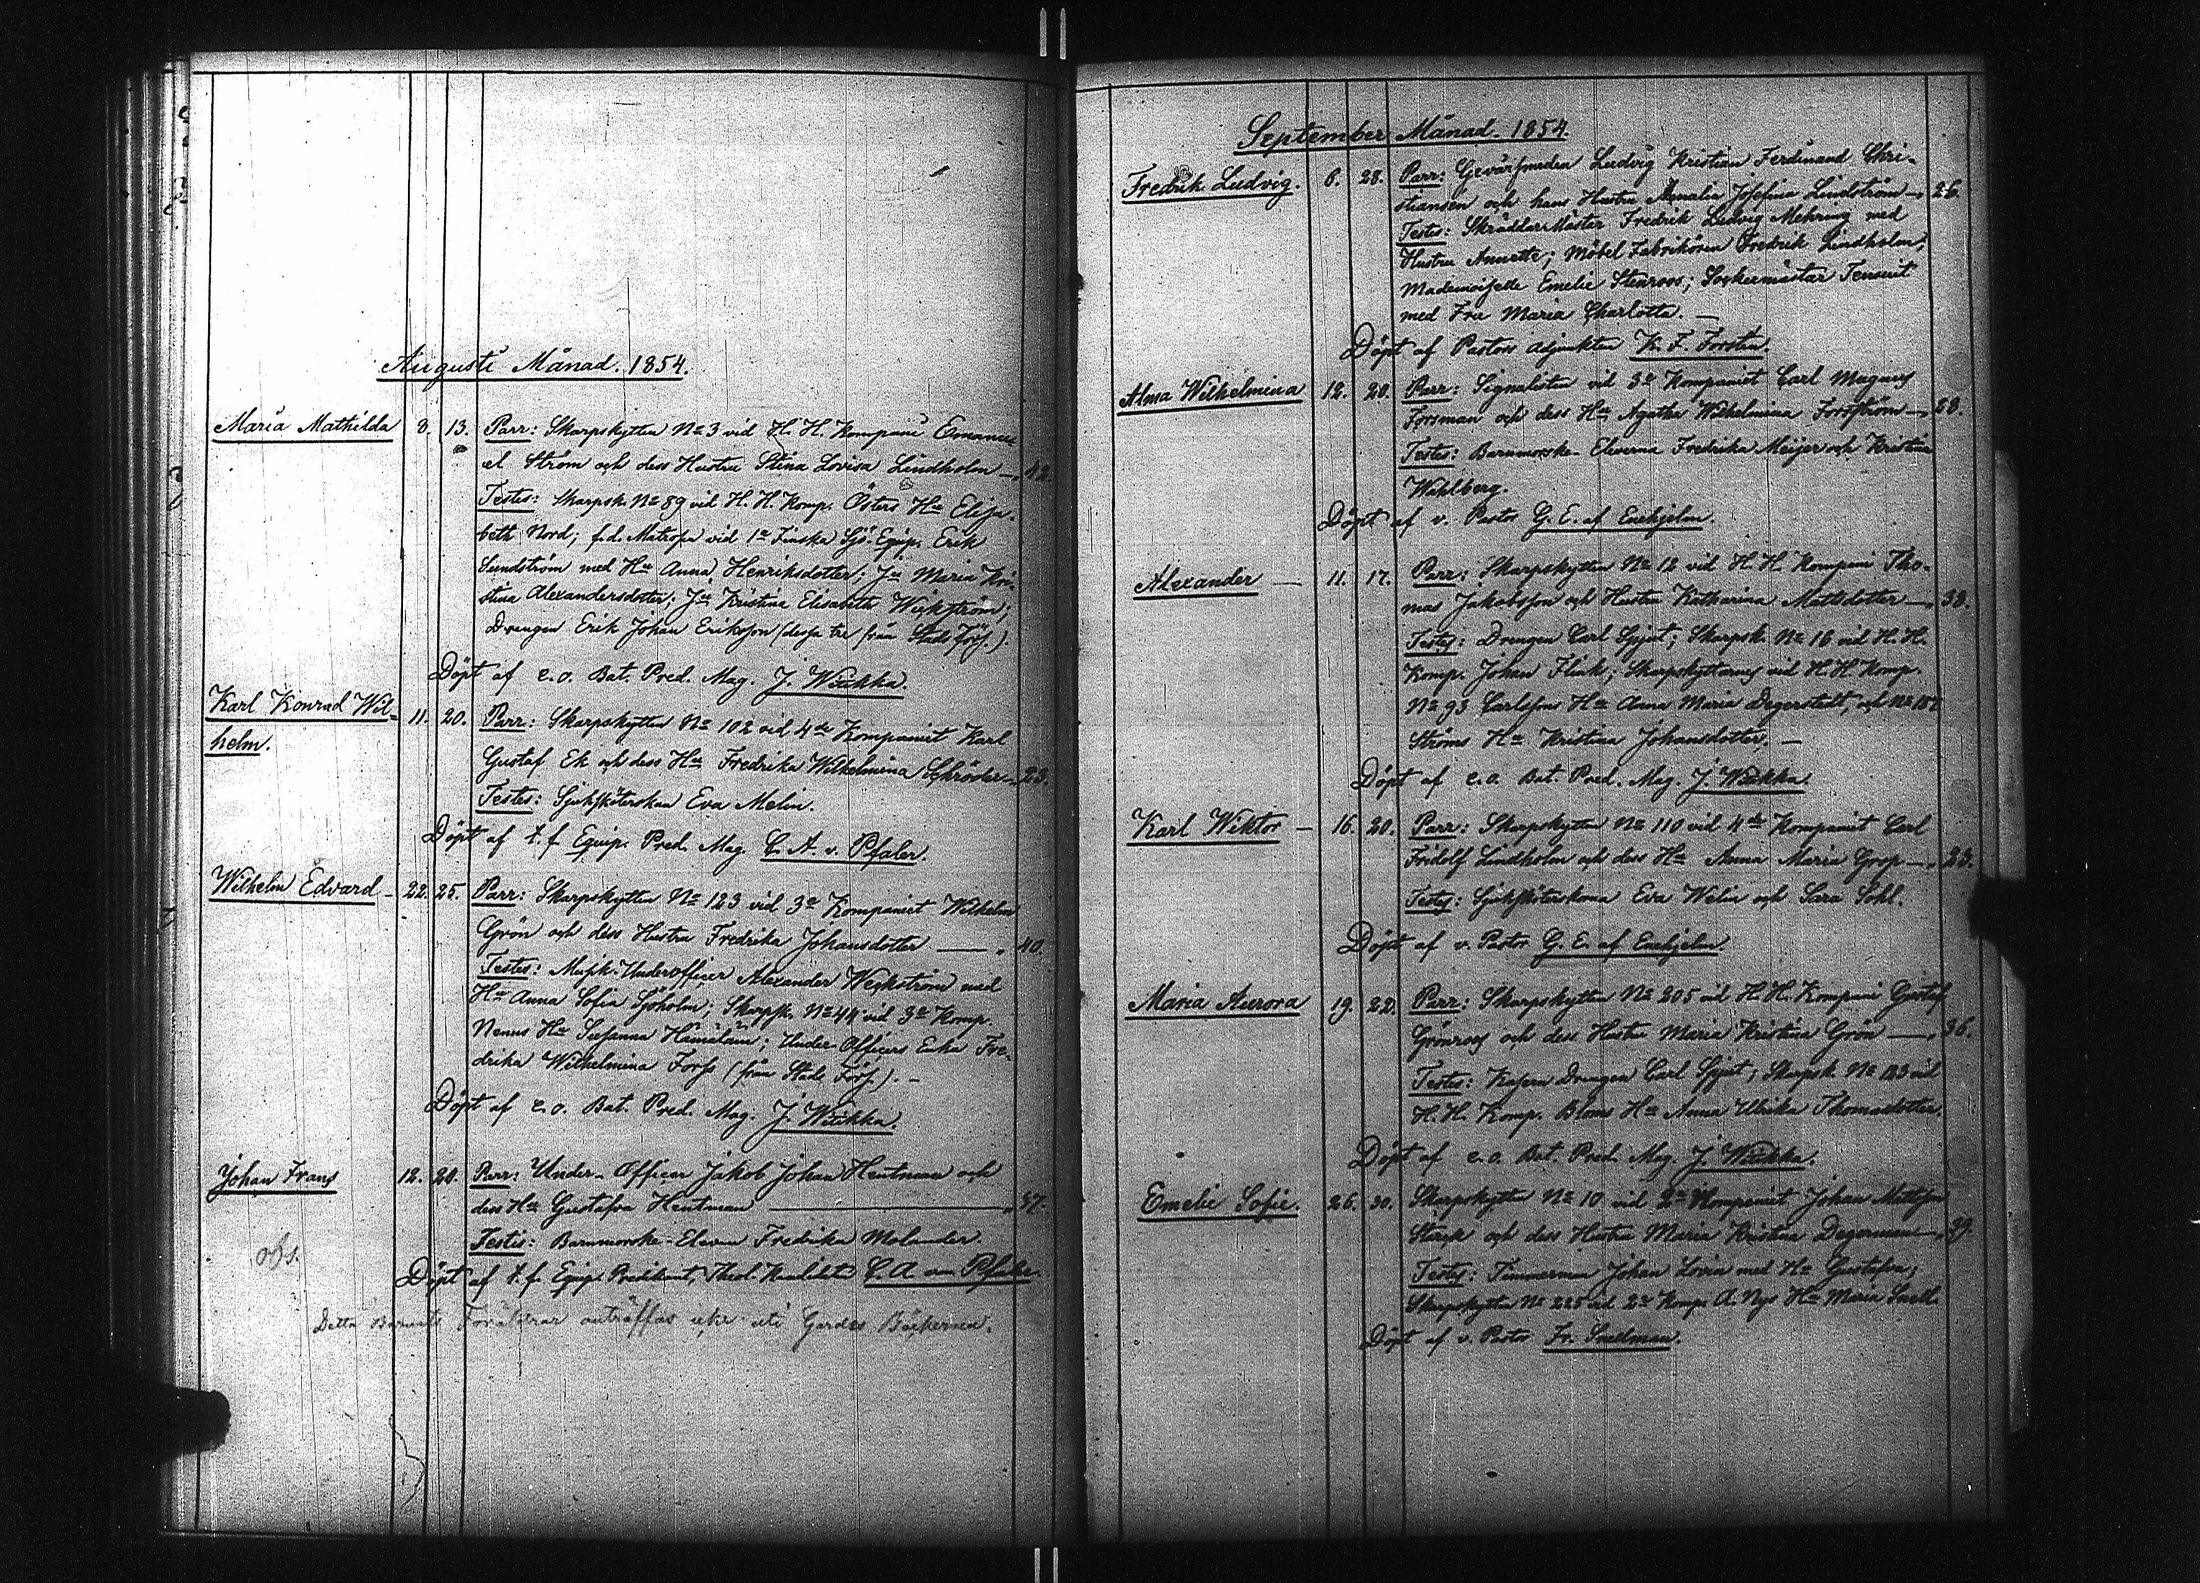 Augusti Månad. 1854.
Maria Mathilda 8. 13. Parr: Skarpskytten No 3 vid H. H. Kompani Emanu-
el Ström och dess Hustru Stina Lovisa Lindholm — 42.
Testes: Skarpsk. No 89 vid H. H. Komp. Östers Hu Elisa-
beth Nord; f.d. Matrosen vid 1a Finska Sjö-Equip. Erik
Sundström med Hu Anna Henriksdotter; Ju Maria Kri-
stina Alexandersdotter; Ju Kristina Elisabeth Wickström;
Drengen Erik Johan Eriksson (dessa tre från Stads Förs.).
Döpt af e.o. Bat. Pred. Mag. J. Wiikka.
Karl Konrad Wil-
helm. 11. 20. Parr: Skarpskytten No 102 vid 4de Kompaniet Karl
Gustaf Ek och dess Hu Fredrika Wilhelmina Schröder — 23.
Testes: Sjuksköterskan Eva Melin.
Döpt af t.f. Equip. Pred. Mag. C. A. v. Pfaler.
Wilhelm Edvard — 22. 25. Parr: Skarpskytten No 123 vid 3e Kompaniet Wilhelm
Grön och dess Hustru Fredrika Johansdotter — 40.
Testes: Musik-Underofficer Alexander Weckström med
Hu Anna Sofia Sjöholm; Skarpsk. No 44 vid 3e Komp.
Nenus Hu Susanna Hämäläin; Under-Officers Enka Fre-
drika Wilhelmina Forss (från Stads Förs.). —
Döpt af e.o. Bat. Pred. Mag. J. Wiikka.
Johan Frans 12. 20. Parr: Under-Officer Jakob Johan Hentman och
dess Hu Gustafva Hentman — 37.
Testis: Barnmorske-Eleven Fredrika Melander.
Döpt af t.f. Equip. Predikant, Theol. Kandidaten C. A. von Pfaler.
obs.
Detta Barnets Föräldrar anträffas icke uti Gardes Böckerna.
September Månad. 1854.
Fredrik Ludvig. 6. 28. Parr: Gevärssmeden Ludvig Kristian Ferdinand Chri-
stiansen och hans Hustru Amalia Josefina Lindström — 26.
Testes: Skräddar Mäster Fredrik Ludvig Mehring med
Hustru Annette; Möbel Fabrikören Fredrik Lindholm;
Mademoiselle Emelie Stenroos; Sockermästar
med Fru Maria Charlotta. —
Döpt af Pastors adjunkten K. F. Forstén.
Alma Wilhelmina 12. 20. Parr: Signalisten vid 3e Kompaniet Carl Magnus
Forsman och dess Hu Agatha Wilhelmina Forsström — 28.
Testes: Barnmorske-Eleverna Fredrika Meijer och Kristina
Wahlberg.
Döpt af v. Pastor G. E. af Enehjelm.
Alexander — 11. 17. Parr: Skarpskytten No 12 vid H. H. Kompani Tho-
mas Jakobsson och Hustru Katharina Mattsdotter — 38.
Testes: Drengen Carl Spjut; Skarpsk. No 16 vid H. H.
Komp. Johan Flink; Skarpskyttarnes vid H. H. Komp.
No 93 Carlssons Hu Anna Maria Degerstedt, och No 157
Ströms Hu Kristina Johansdotter. —
Döpt af e.o. Bat. Pred. Mag. J. Wiikka
Karl Wiktor — 16. 20. Parr: Skarpskytten No 110 vid 4de Kompaniet Carl
Fridolf Lindholm och dess Hu Anna Maria Grop — 23.
Testes: Sjuksköterskorna Eva Welin och Sara Sohl.
Döpt af v. Pastor G. E. af Enehjelm.
Maria Aurora 19. 22. Parr: Skarpskytten No 205 vid H. H. Kompani Gustaf
Grönroos och dess Hustru Maria Kristina Grön — 36.
Testes: Kasern Drengen Carl Spjut; Skarpsk. No 123 vid
H. H. Komp. Bloms Hu Anna Ulrika Thomasdotter.
Döpt af e.o. Bat. Pred. Mag. J. Wiikka.
Emelie Sofie. 26. 30. Skarpskytten No 10 vid 2a Kompaniet Johan Mattsson
Starck och dess Hustru Maria Kristina Degerman — 39.
Testes: Timmerman Johan Lovin med Hu Gustafva;
Skarpskytten No 225 vid 2a Komp. A. Nys Hu Maria Snell.
Döpt af v. Pastor Fr. Snellman.